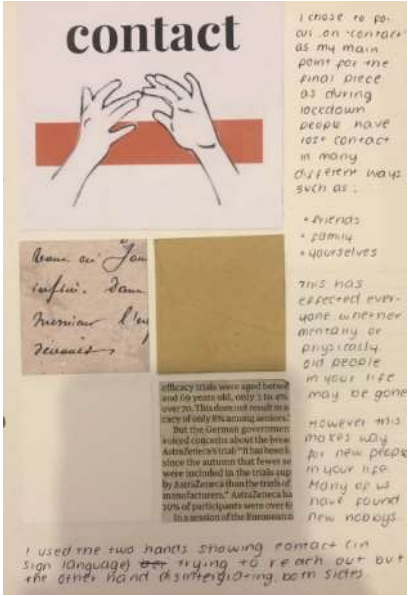 contact
I chose to fo-
cus on 'contact'
as my main
point for the
final piece
as during
lockdown
people have
lost contact
in many
different ways
such as:
• friends
• family
• yourselves
This has
effected ever-
yone whether
mentally or
physically.
old people
in your life
may be gone
However this
makes way
for new people
in your life.
Many of us
have found
new hobbys.
efficacy trials were aged betwe
and 69 years old, only 3 to 4%
over 70. This does not result in a
cacy of only 8% among seniors."
But the German governmen
voiced concerns about the brea
AstraZeneca's trial: "It has been k
since the autumn that fewer se
were included in the trials sup
by AstraZeneca than the trials of
manufacturers." AstraZeneca ha
10% of participants were over 6
In a session of the European
I used the two hands showing contact (in
sign language) trying to reach out but
the other hand disintergrating, both sides